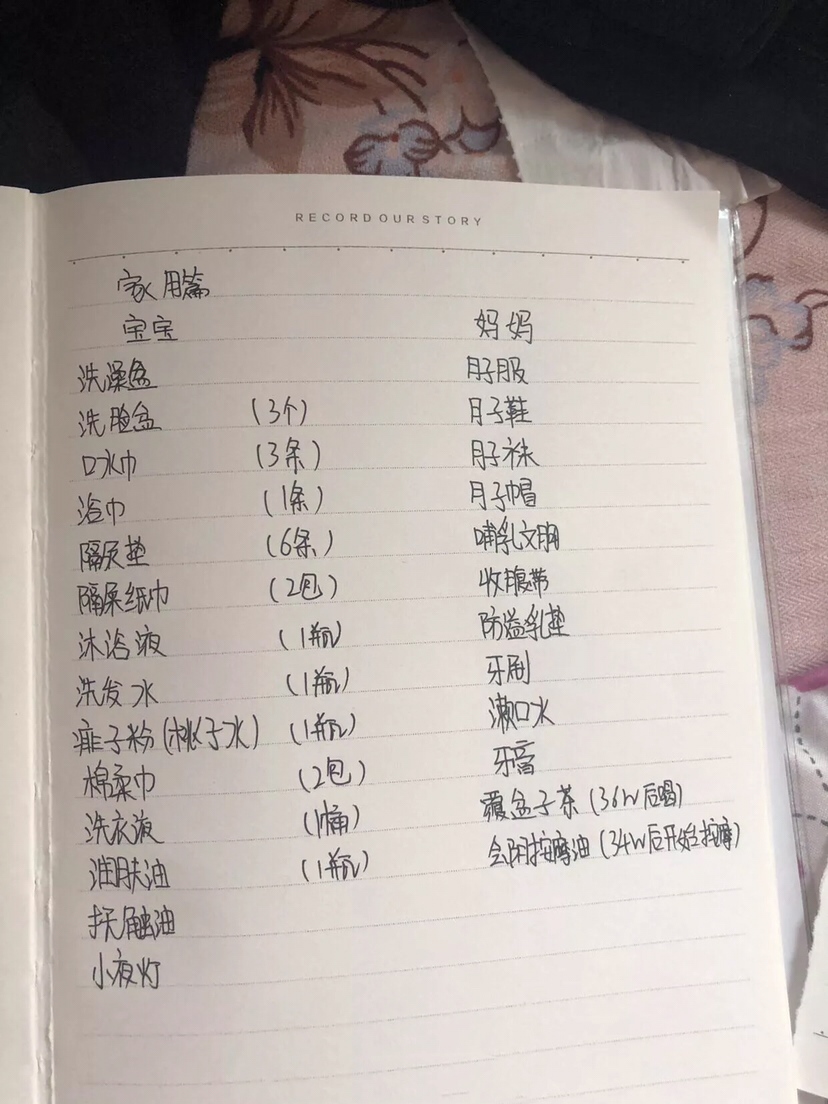 RECORD OUR STORY
家用篇
宝宝
洗澡盆
洗脸盆 (3个)
口水巾 (3条)
浴巾 (1条)
隔尿垫 (6条)
隔尿纸巾 (2包)
沐浴液 (1瓶)
洗发水 (1瓶)
痱子粉(桃子水) (1瓶)
棉柔巾 (2包)
洗衣液 (1桶)
润肤油 (1瓶)
抚触油
小夜灯
妈妈
月子服
月子鞋
月子袜
月子帽
哺乳文胸
收腹带
防溢乳垫
牙刷
漱口水
牙膏
覆盆子茶(36W后喝)
会阴按摩油(34W后开始按摩)